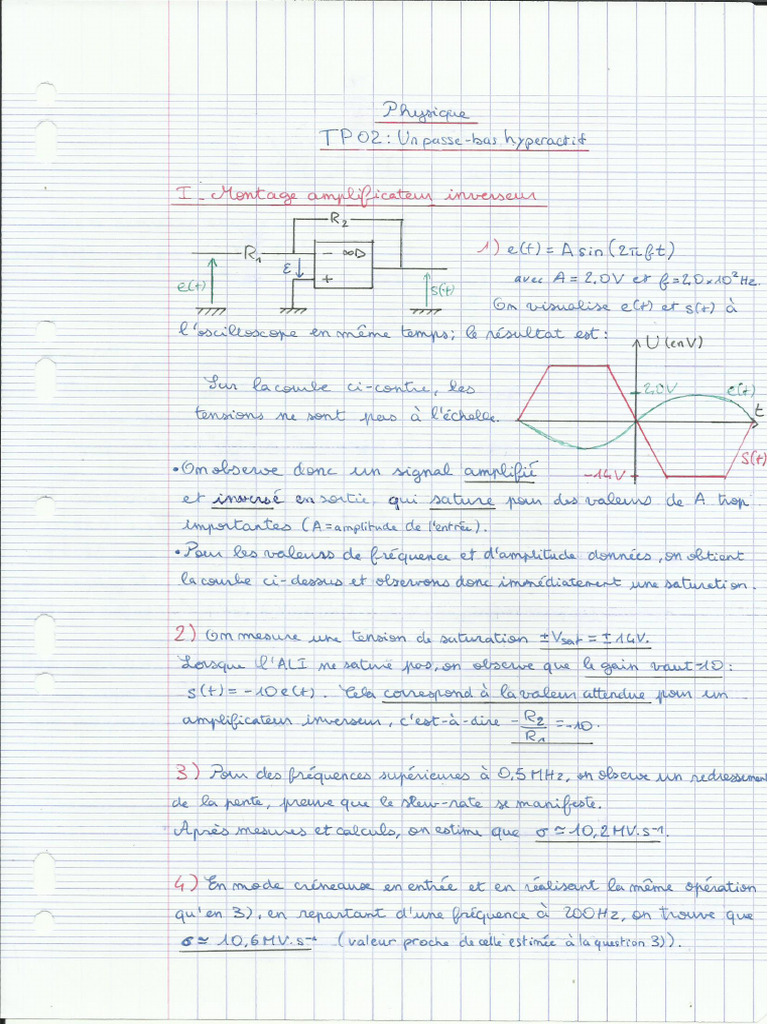 Physique
TP02: Un passe-bas hyperactif
I - Montage amplificateur inverseur
R2
R1
- ∞▷
+
ε
e(t)
s(t)
1) e(t) = A sin(2πft)
avec A = 2.0V et f = 2,0×10² Hz.
On visualise e(t) et s(t) à
l'oscilloscope en même temps; le résultat est:
U (en V)
2.0V
e(t)
t
s(t)
-14V
Sur la courbe ci-contre, les
tensions ne sont pas à l'échelle.
• On observe donc un signal amplifié
et inversé en sortie, qui sature pour des valeurs de A trop
importantes (A = amplitude de l'entrée).
• Pour les valeurs de fréquence et d'amplitude données, on obtient
la courbe ci-dessus et observons donc immédiatement une saturation.
2) On mesure une tension de saturation ±Vsat = ±14V.
Lorsque l'ALI ne sature pas, on observe que le gain vaut -10:
s(t) = -10 e(t). Cela correspond à la valeur attendue pour un
amplificateur inverseur, c'est-à-dire -R2/R1 = -10.
3) Pour des fréquences supérieures à 0,5 MHz, on observe un redressement
de la pente, preuve que le slew-rate se manifeste.
Après mesures et calculs, on estime que σ ≃ 10,2 MV.s⁻¹.
4) En mode créneaux en entrée et en réalisant la même opération
qu'en 3), en repartant d'une fréquence à 200Hz, on trouve que
σ ≃ 10,6 MV.s⁻¹ (valeur proche de celle estimée à la question 3)).